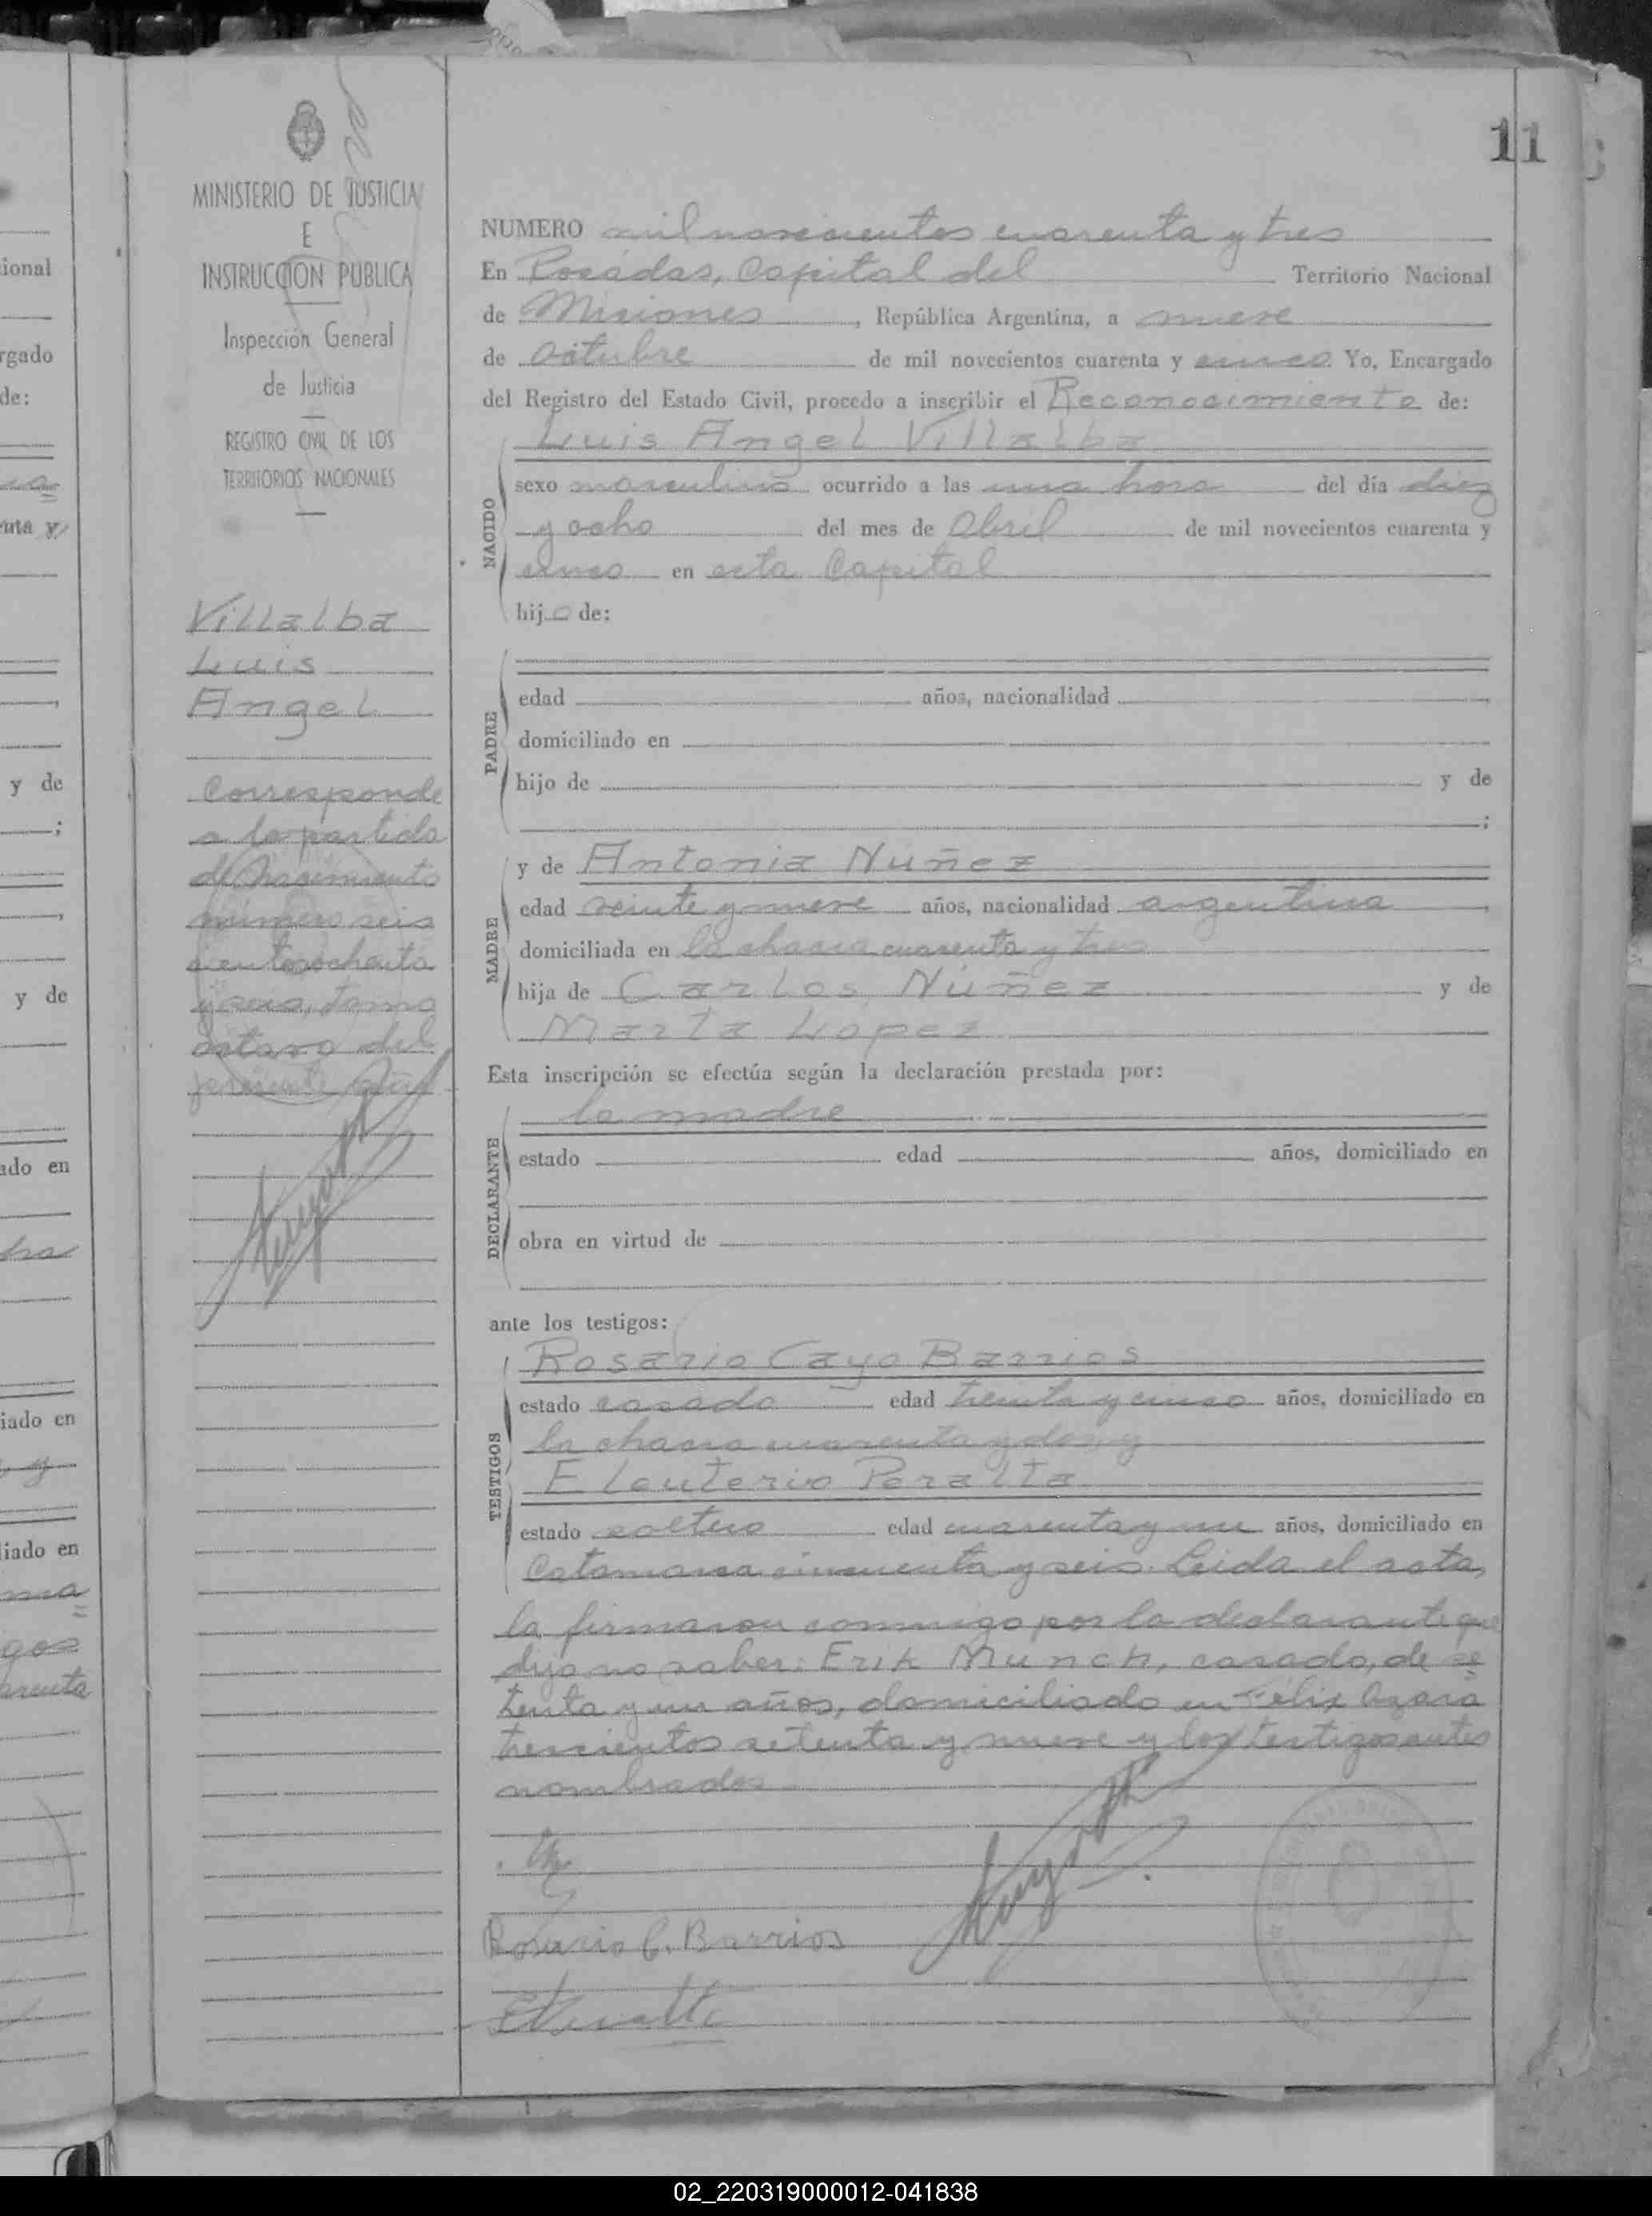 11
MINISTERIO DE JUSTICIA
E
INSTRUCCION PUBLICA
Inspección General
de Justicia
REGISTRO CIVIL DE LOS
TERRITORIOS NACIONALES
Villalba
Luis
Angel
Corresponde
a la partida
de nacimiento
número seis
cientos ochenta
y seis, tomo
octavo del
presente año
NUMERO mil novecientos cuarenta y tres
En Posadas, Capital del Territorio Nacional
de Misiones, República Argentina, a nueve
de octubre de mil novecientos cuarenta y cinco Yo, Encargado
del Registro del Estado Civil, procedo a inscribir el Reconocimiento de:
Luis Angel Villalba
NACIDO
sexo masculino ocurrido a las una hora del día diez
y ocho del mes de Abril de mil novecientos cuarenta y
cinco en esta Capital
hijo de:
PADRE
edad años, nacionalidad
domiciliado en
hijo de y de
;
MADRE
y de Antonia Nuñez
edad veinte y nueve años, nacionalidad argentina,
domiciliada en la chacra cuarenta y tres
hija de Carlos Núñez y de
Marta López
Esta inscripción se efectúa según la declaración prestada por:
DECLARANTE
la madre
estado edad años, domiciliado en
obra en virtud de
ante los testigos:
TESTIGOS
Rosario Cayo Barrios
estado casado edad treinta y cinco años, domiciliado en
la chacra cuarenta y dos, y
Eleuterio Peralta
estado soltero edad cuarenta y un años, domiciliado en
Catamarca cincuenta y seis. Leída el acta,
la firmaron conmigo por la declarante que
dijo no saber: Erik Munch, casado, de se
tenta y un años, domiciliado en Félix Azara
trescientos setenta y nueve y los testigos antes
nombrados
Rosario C. Barrios
EPeralta
ional
rgado
de:
y de
;
y de
ado en
iado en
y
liado en
02_220319000012-041838